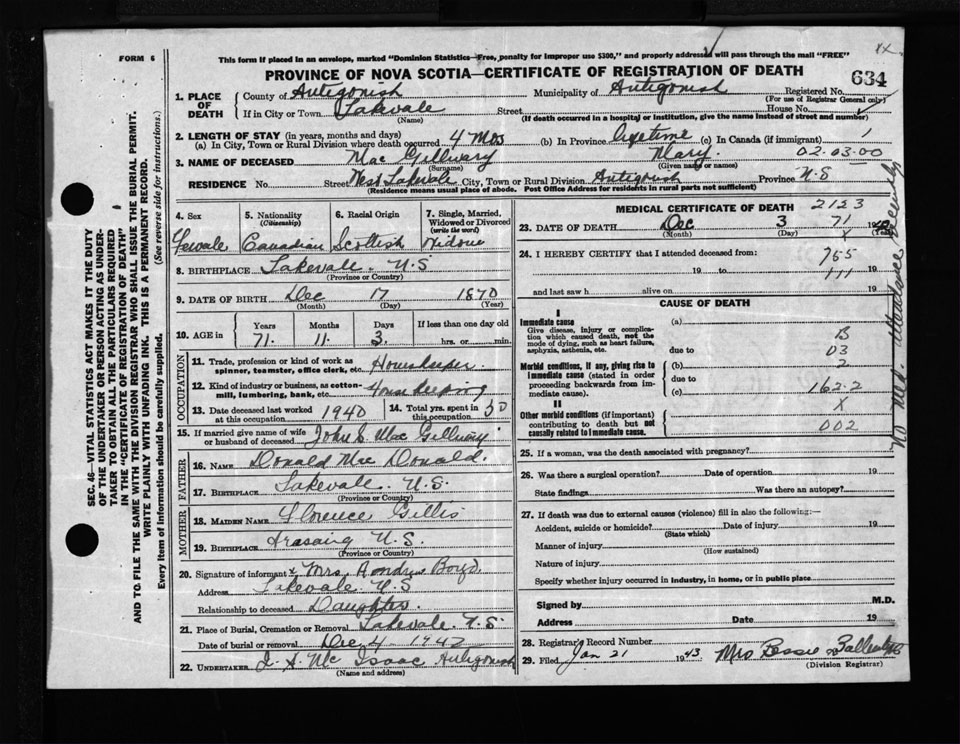 FORM 6
This form if placed in an envelope, marked "Dominion Statistics—Free, penalty for improper use $300," and properly addressed will pass through the mail "FREE"
PROVINCE OF NOVA SCOTIA—CERTIFICATE OF REGISTRATION OF DEATH 634
1. PLACE OF DEATH County of Antigonish Municipality of Antigonish Registered No.
(For use of Registrar General only)
If in City or Town Lakevale Street House No.
(Name) (If death occurred in a hospital or institution, give the name instead of street and number)
2. LENGTH OF STAY (in years, months and days)
(a) In City, Town or Rural Division where death occurred 4 Mos (b) In Province Lifetime (c) In Canada (if immigrant) 1
3. NAME OF DECEASED Mac Gillivary Mary. 02-03-00
(Surname) (Given name or names)
RESIDENCE No. Street West Lakevale City, Town or Rural Division Antigonish Province N-S
(Residence means usual place of abode. Post Office Address for residents in rural parts not sufficient)
4. Sex 5. Nationality (Citizenship) 6. Racial Origin 7. Single, Married, Widowed or Divorced (write the word)
Female Canadian Scottish Widow
8. BIRTHPLACE Lakevale. N.S
(Province or Country)
9. DATE OF BIRTH Dec 17 1870
(Month) (Day) (Year)
10. AGE in Years Months Days If less than one day old
71. 11. 3. hrs. or min.
OCCUPATION
11. Trade, profession or kind of work as spinner, teamster, office clerk, etc. Housekeeper.
12. Kind of industry or business, as cotton-mill, lumbering, bank, etc. House keeping
13. Date deceased last worked at this occupation 1940 14. Total yrs. spent in this occupation 30
15. If married give name of wife or husband of deceased John S. Mac Gillivary
FATHER
16. NAME Donald Mac Donald.
17. BIRTHPLACE Lakevale. N.S.
(Province or Country)
MOTHER
18. MAIDEN NAME Florence Gillis
19. BIRTHPLACE Arasaig N.S.
(Province or Country)
20. Signature of informant Mrs Andrew Boyd
Address Lakevale N.S
Relationship to deceased Daughter.
21. Place of Burial, Cremation or Removal Lakevale. N.S.
Date of burial or removal Dec 4 1942
22. UNDERTAKER Mc Isaac Antigonish
(Name and address)
MEDICAL CERTIFICATE OF DEATH 2123
23. DATE OF DEATH Dec 3 71 19
(Month) (Day) X (Year)
24. I HEREBY CERTIFY that I attended deceased from: 765
19 to 111 19
and last saw h alive on 19
CAUSE OF DEATH
I
Immediate cause (a)
Give disease, injury or complication which caused death, not the mode of dying, such as heart failure, asphyxia, asthenia, etc. B
due to 03
Morbid conditions, if any, giving rise to immediate cause (stated in order proceeding backwards from immediate cause). (b) 2
due to
(c) 162.2
II
Other morbid conditions (if important) contributing to death but not causally related to immediate cause. X
002
No Med. Attendance
25. If a woman, was the death associated with pregnancy?
26. Was there a surgical operation? Date of operation 19
State findings Was there an autopsy?
27. If death was due to external causes (violence) fill in also the following:—
Accident, suicide or homicide? Date of injury 19
(State which)
Manner of injury
(How sustained)
Nature of injury
Specify whether injury occurred in industry, in home, or in public place
Signed by M.D.
Address Date 19
28. Registrar's Record Number
29. Filed Jan 21 1943 Mrs Bessie
(Division Registrar)
SEC. 46—VITAL STATISTICS ACT MAKES IT THE DUTY
OF THE UNDERTAKER OR PERSON ACTING AS UNDER-
TAKER TO OBTAIN ALL THE PARTICULARS REQUIRED
IN THE "CERTIFICATE OF REGISTRATION OF DEATH"
AND TO FILE THE SAME WITH THE DIVISION REGISTRAR WHO SHALL ISSUE THE BURIAL PERMIT.
WRITE PLAINLY WITH UNFADING INK. THIS IS A PERMANENT RECORD.
Every item of information should be carefully supplied. (See reverse side for instructions.)